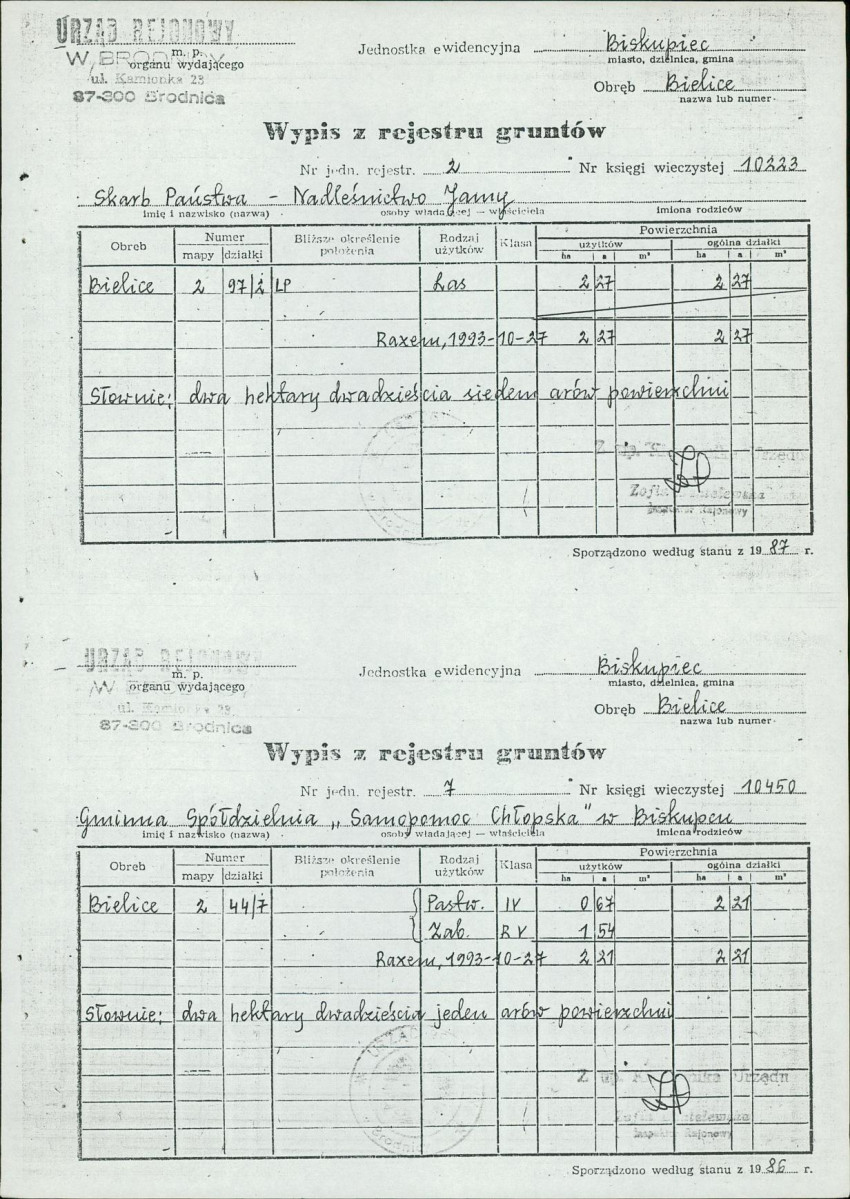 URZĄD REJONOWY
W BRODNICY
m. p.
organu wydającego
ul. Kamionka 23
87-300 Brodnica
Jednostka ewidencyjna Biskupiec
miasto, dzielnica, gmina
Obręb Bielice
nazwa lub numer
Wypis z rejestru gruntów
Nr jedn. rejestr. 2 Nr księgi wieczystej 10223
Skarb Państwa - Nadleśnictwo Jamy
imię i nazwisko (nazwa) osoby władającej — właściciela imiona rodziców
Obręb Numer Bliższe określenie położenia Rodzaj użytków Klasa Powierzchnia
mapy działki użytków ogólna działki
ha a m² ha a m²
Bielice 2 97/2 LP Las 2 27 2 27
Razem, 1993-10-27 2 27 2 27
Słownie: dwa hektary dwadzieścia siedem arów powierzchni
Z up. Urzędu
Zofia
Inspektor Rejonowy
Sporządzono według stanu z 1987 r.
URZĄD REJONOWY
W
m. p.
organu wydającego
ul. Kamionka 23
87-300 Brodnica
Jednostka ewidencyjna Biskupiec
miasto, dzielnica, gmina
Obręb Bielice
nazwa lub numer
Wypis z rejestru gruntów
Nr jedn. rejestr. 7 Nr księgi wieczystej 10450
Gminna Spółdzielnia „Samopomoc Chłopska" w Biskupcu
imię i nazwisko (nazwa) osoby władającej — właściciela imiona rodziców
Obręb Numer Bliższe określenie położenia Rodzaj użytków Klasa Powierzchnia
mapy działki użytków ogólna działki
ha a m² ha a m²
Bielice 2 44/7 Pastw. IV 0 67 2 21
Zab. R V 1 54
Razem, 1993-10-27 2 21 2 21
Słownie: dwa hektary dwadzieścia jeden arów powierzchni
Z up. Urzędu
Inspektor Rejonowy
Sporządzono według stanu z 1986 r.